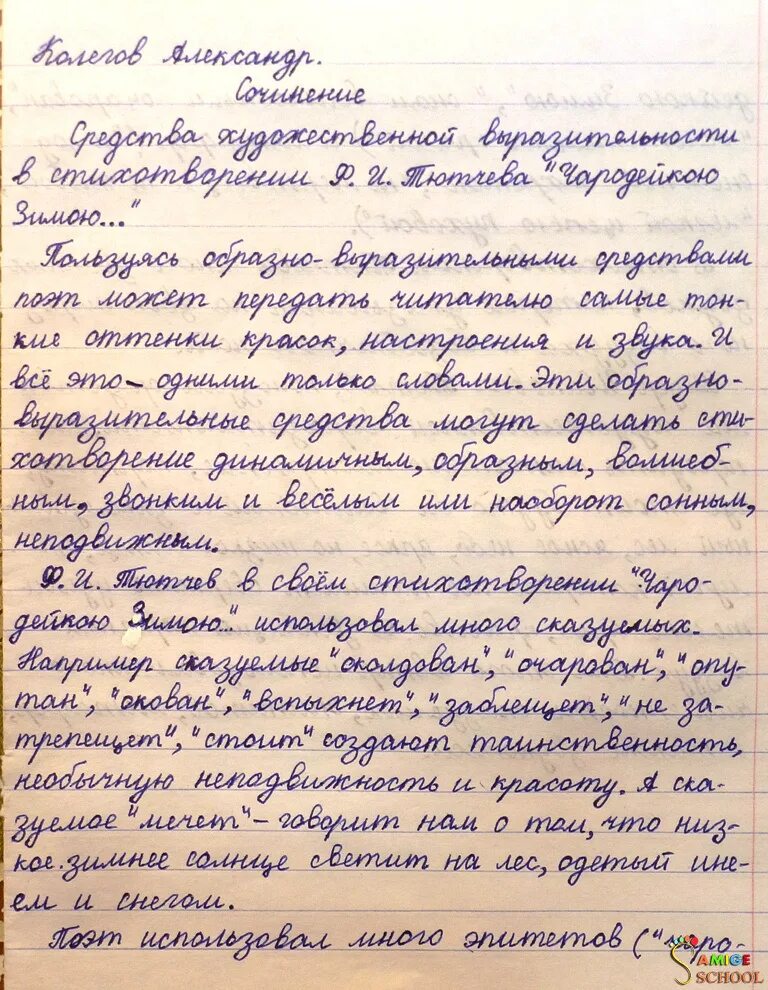 Колегов Александр.
Сочинение
Средства художественной выразительности
в стихотворении Ф. И. Тютчева "Чародейкою
Зимою..."
Пользуясь образно-выразительными средствами
поэт может передать читателю самые тон-
кие оттенки красок, настроения и звука. И
всё это – одними только словами. Эти образно-
выразительные средства могут сделать сти-
хотворение динамичным, образным, волшеб-
ным, звонким и весёлым или наоборот сонным,
неподвижным.
Ф. И. Тютчев в своём стихотворении "Чаро-
дейкою Зимою..." использовал много сказуемых.
Например сказуемые "околдован", "очарован", "опу-
тан", "окован", "вспыхнет", "заблещет", "не за-
трепещет", "стоит" создают таинственность,
необычную неподвижность и красоту. А ска-
зуемое "мечет" – говорит нам о том, что низ-
кое зимнее солнце светит на лес, одетый ине-
ем и снегом.
Поэт использовал много эпитетов ("чаро-
AMIGE
SCHOOL